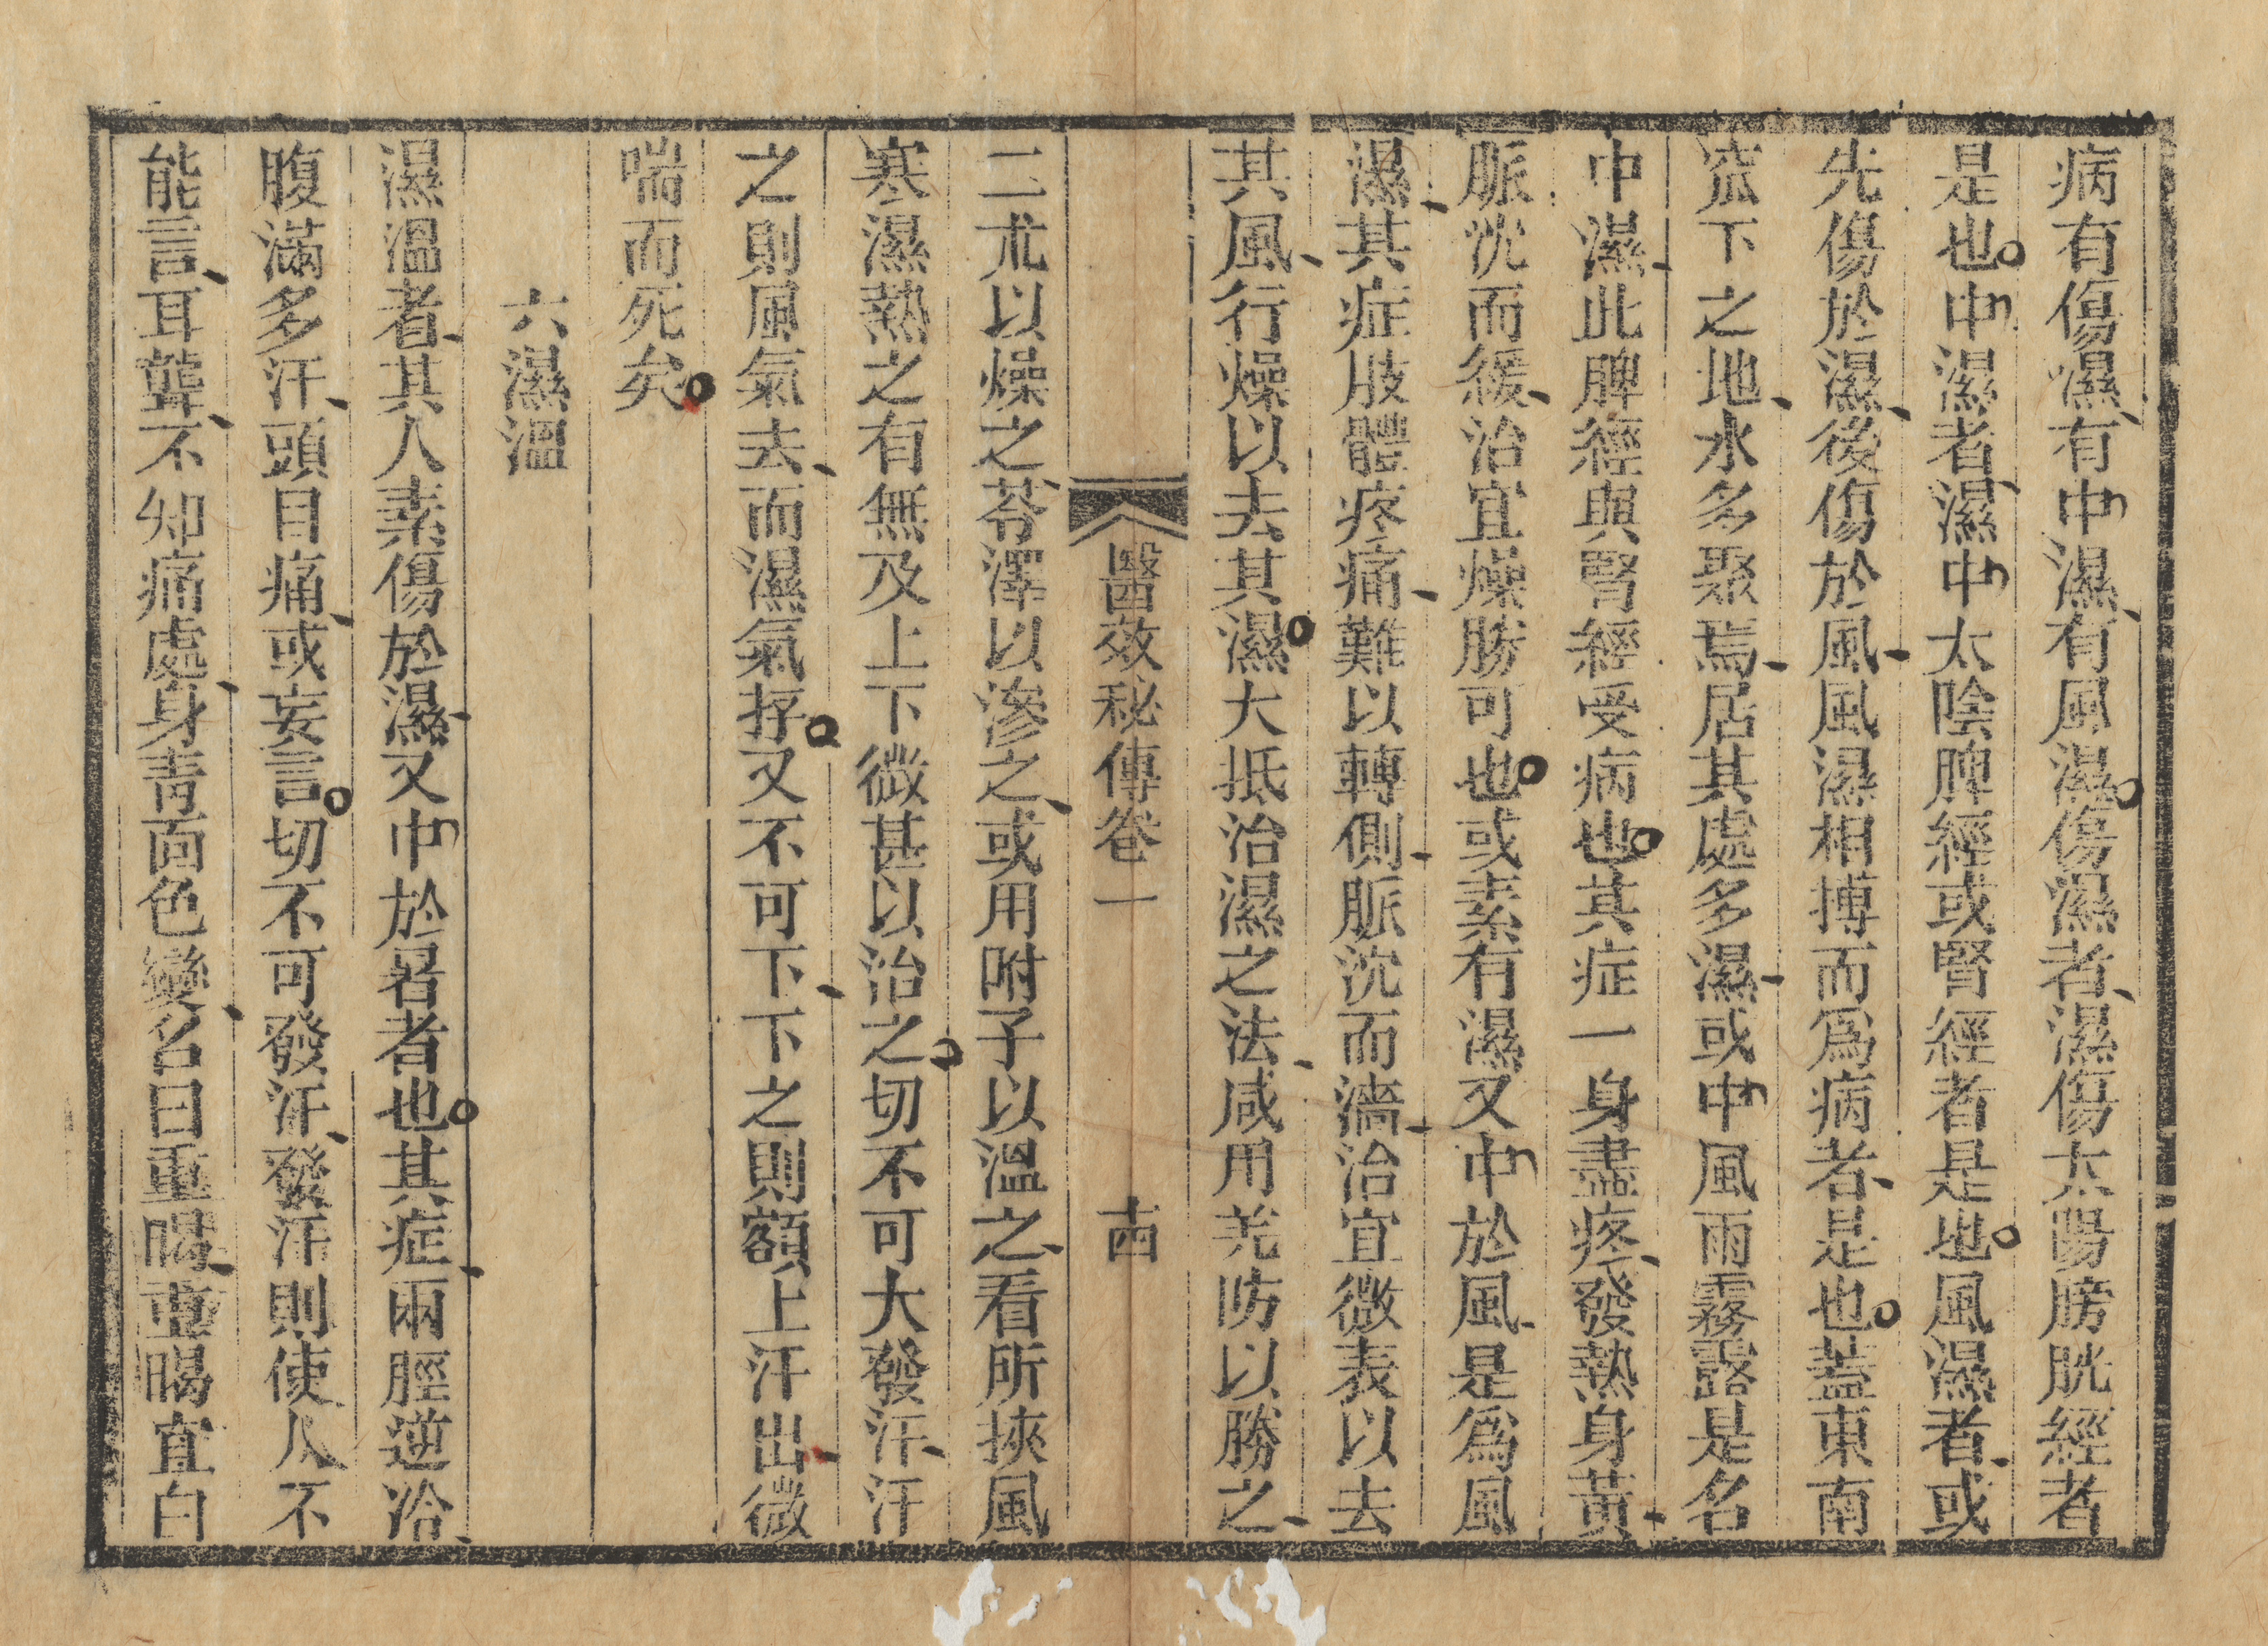 病有傷濕有中濕有風濕傷濕者濕傷太陽膀胱經者
是也中濕者濕中太陰脾經或腎經者是也風濕者或
先傷於濕後傷於風風濕相搏而爲病者是也蓋東南
窊下之地水多聚焉居其處多濕或中風雨霧露是名
中濕此脾經與腎經受病也其症一身盡疼發熱身黃
脈沈而緩治宜燥勝可也或素有濕又中於風是爲風
濕其症肢體疼痛難以轉側脈沈而濇治宜微表以去
其風行燥以去其濕大抵治濕之法咸用羌防以勝之
醫效秘傳卷一 十四
二朮以燥之苓澤以滲之或用附子以溫之看所挾風
寒濕熱之有無及上下微甚以治之切不可大發汗汗
之則風氣去而濕氣存又不可下下之則額上汗出微
喘而死矣
六濕溫
濕溫者其人素傷於濕又中於暑者也其症兩脛逆冷
腹滿多汗頭目痛或妄言切不可發汗發汗則使人不
能言耳聾不知痛處身青面色變名曰重暍重暍宜白